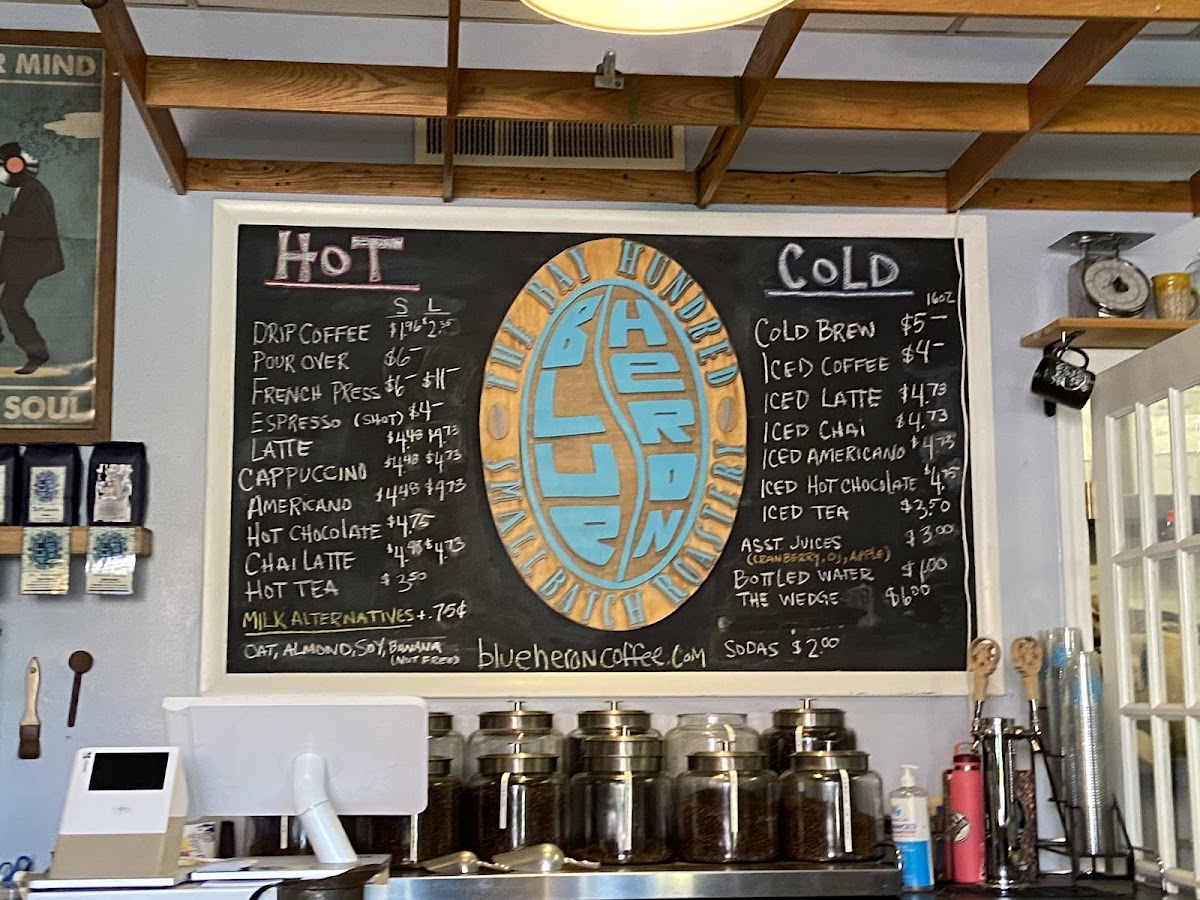 R MIND
SOUL
HOT
S L
DRIP COFFEE $1.96 $2.35
POUR OVER $6-
FRENCH PRESS $6- $11-
ESPRESSO (SHOT) $4-
LATTE $4.48 $4.73
CAPPUCCINO $4.48 $4.73
AMERICANO $4.48 $4.73
HOT CHOCOLATE $4.75
CHAI LATTE $4.98 $4.73
HOT TEA $3.50
MILK ALTERNATIVES +.75¢
OAT, ALMOND, SOY, BANANA
(NUT FREE)
THE BAY HUNDRED
BLUE
HERON
SMALL BATCH ROASTERY
blueheroncoffee.com
COLD
16OZ
COLD BREW $5-
ICED COFFEE $4-
ICED LATTE $4.73
ICED CHAI $4.73
ICED AMERICANO $4.73
ICED HOT CHOCOLATE $4.75
ICED TEA $3.50
ASST. JUICES $3.00
(CRANBERRY, OJ, APPLE)
BOTTLED WATER $1.00
THE WEDGE $6.00
SODAS $2.00